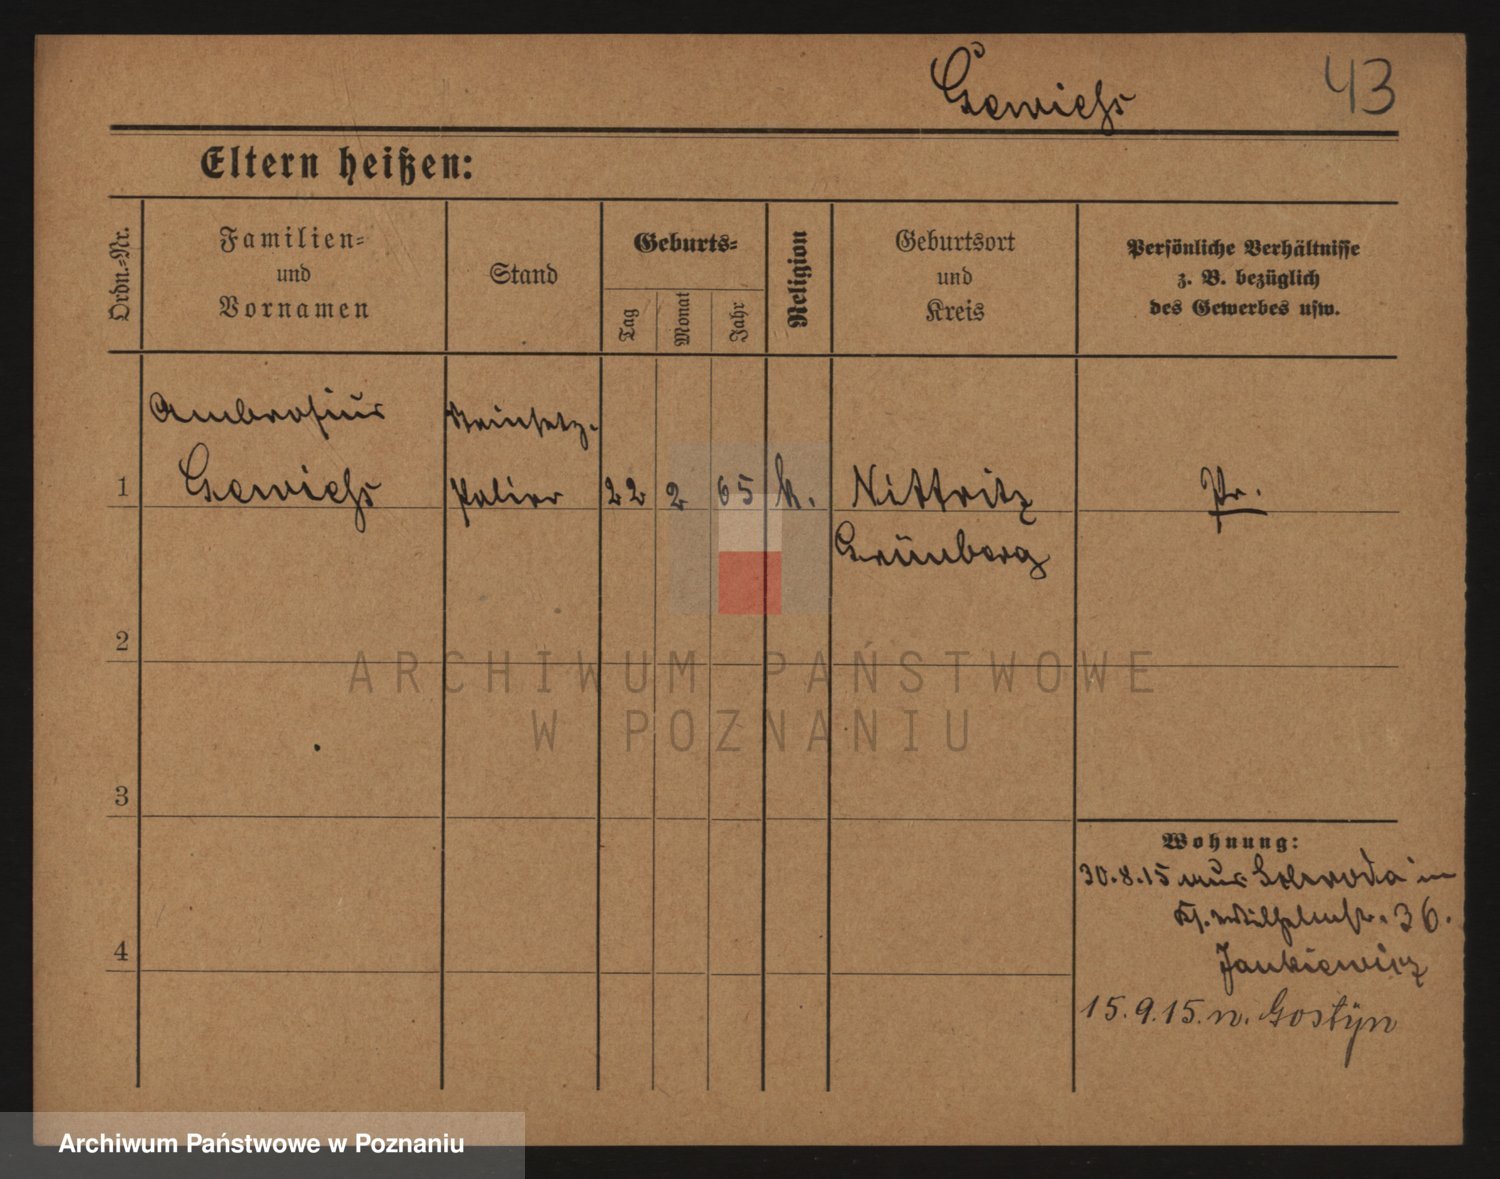 Gewiehs
43
Eltern heißen:
Ordn.=Nr.
Familien=
und
Vornamen
Stand
Geburts=
Tag
Monat
Jahr
Religion
Geburtsort
und
Kreis
Persönliche Verhältnisse
z. B. bezüglich
des Gewerbes usw.
Ambrosius
Steinsetz.
1
Gewiehs
Polier
22
2
65
k.
Nittritz
Pr.
Grünberg
2
ARCHIWUM PAŃSTWOWE
W POZNANIU
3
Wohnung:
30.8.15 aus Schroda in
Wilhelmstr. 36.
4
Jankiewicz
15.9.15. n. Gostyn
Archiwum Państwowe w Poznaniu